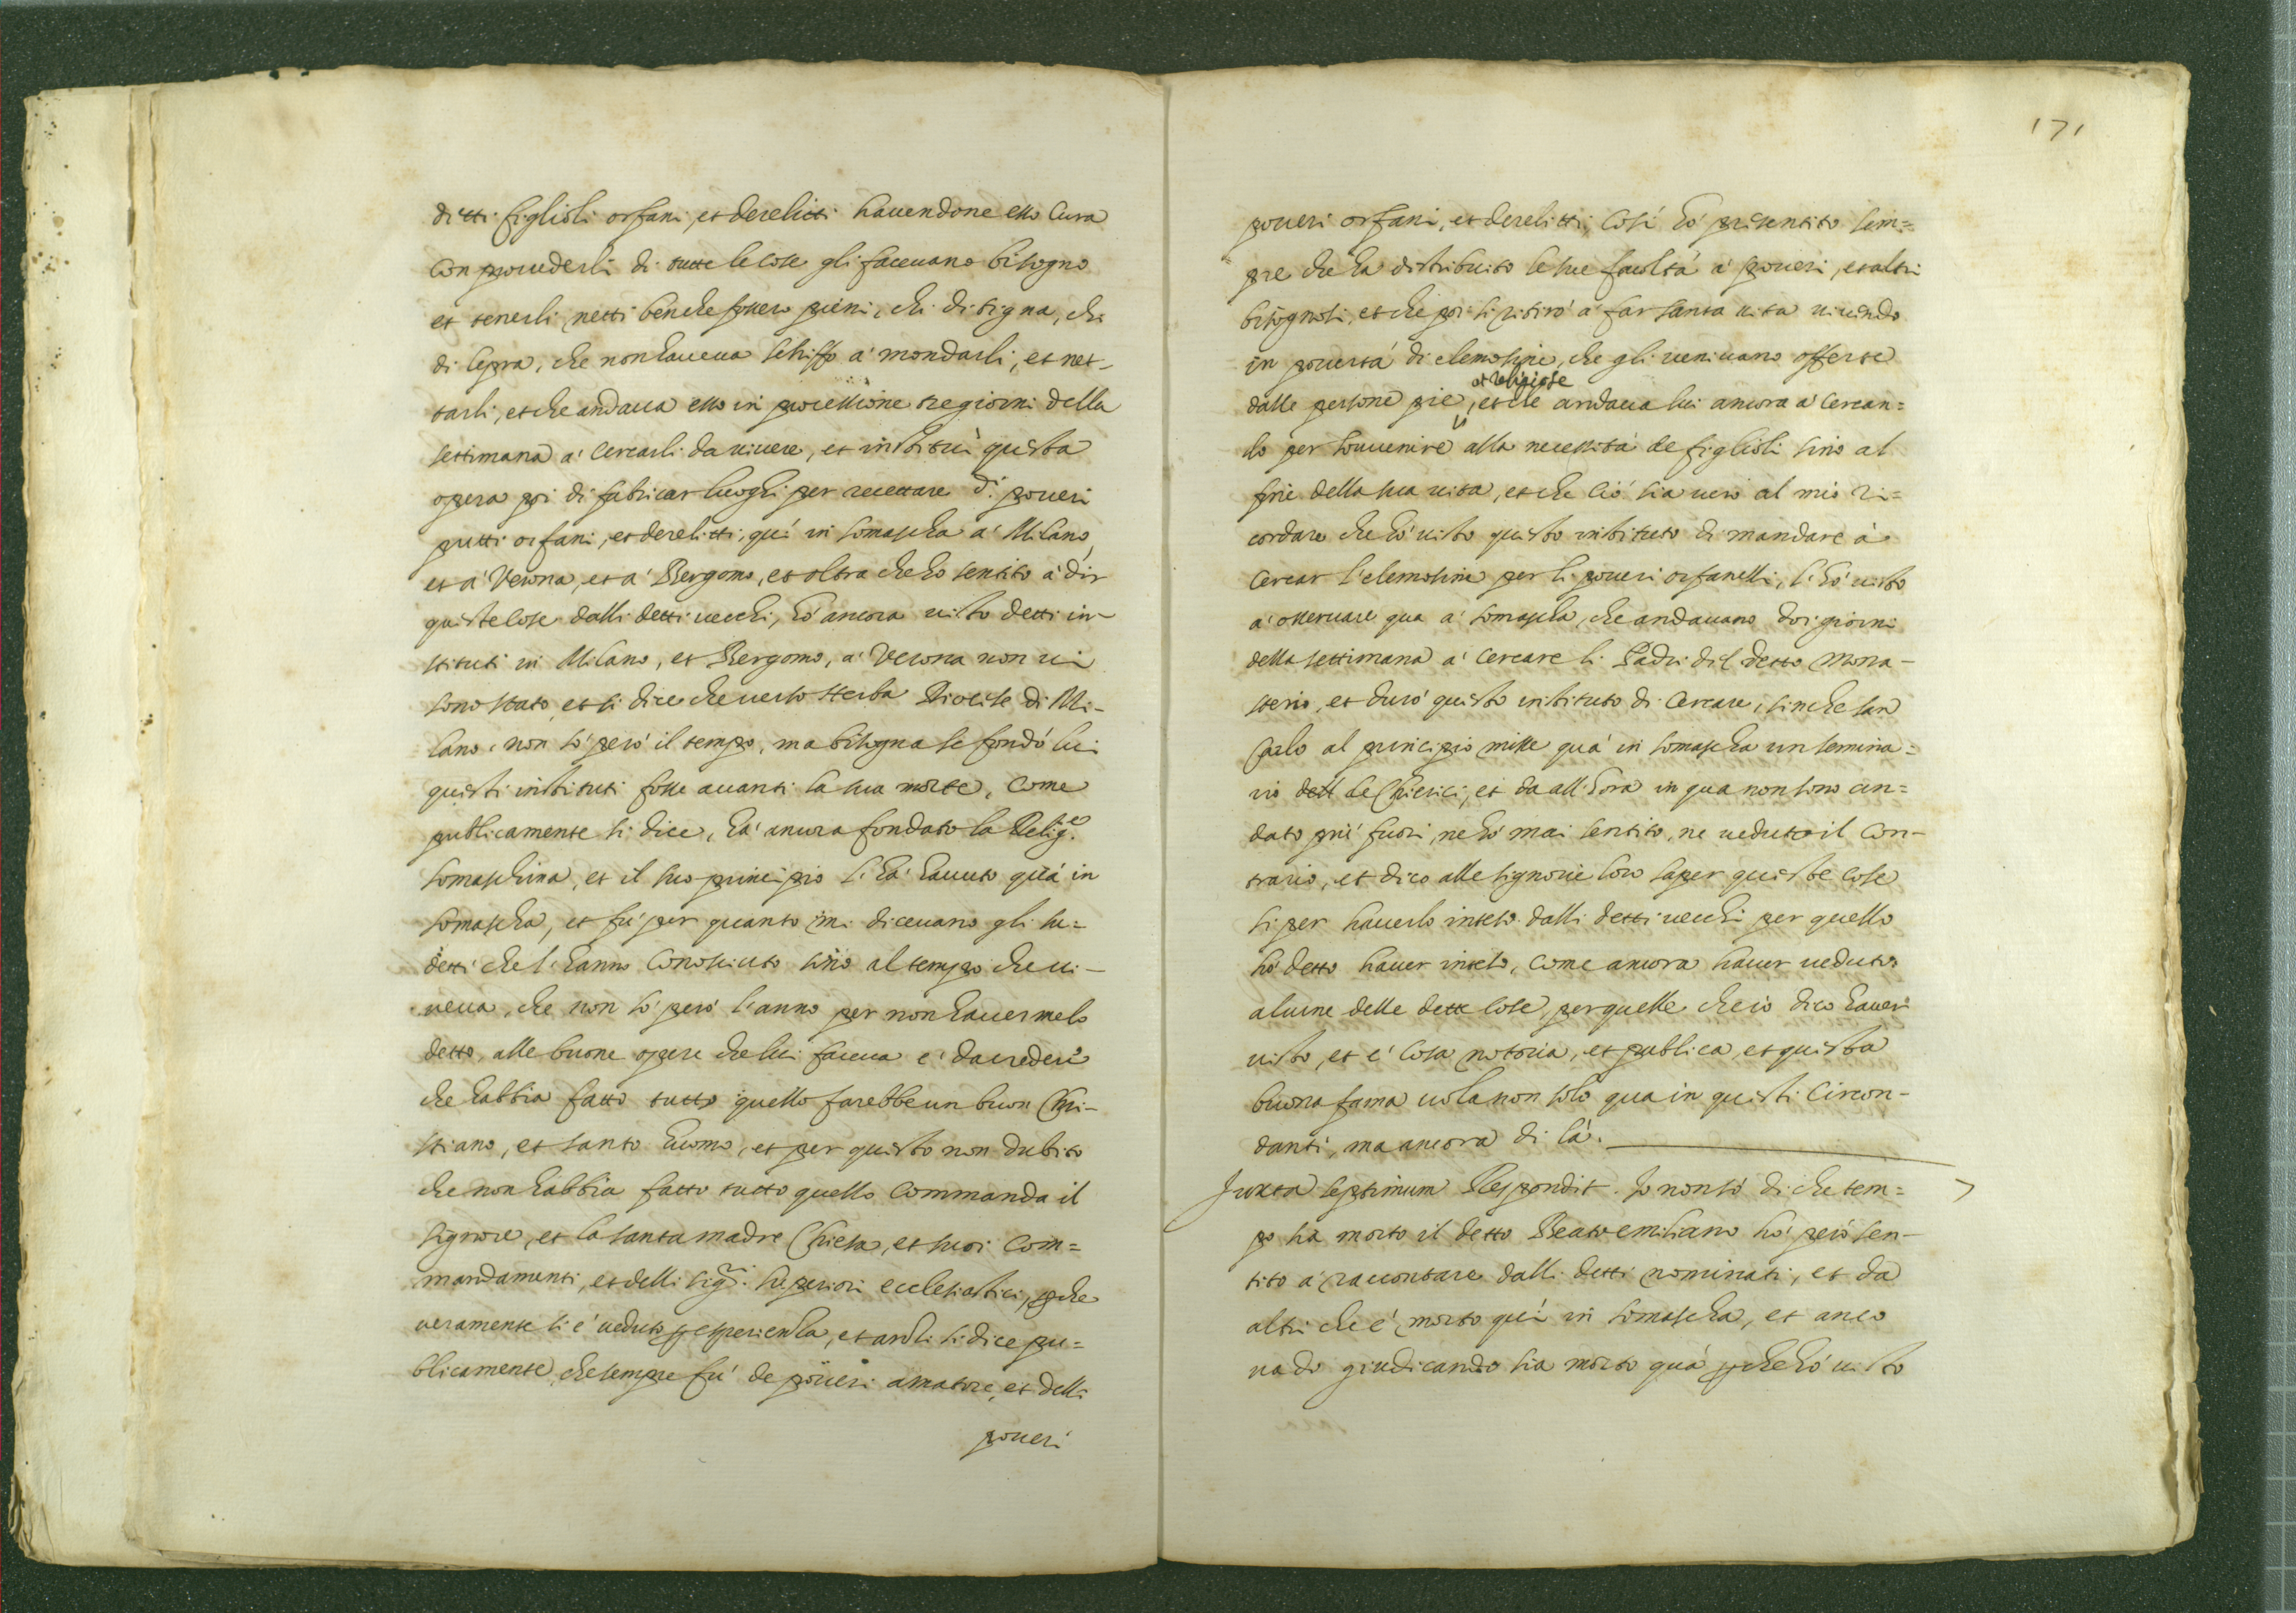 detti figlioli orfani, et derelitti hauendone esso Cura
con prouederli di tutte le cose gli faceuano bisogno
et tenerli netti benche fossero pieni, chi di tigna, chi
di lepra, che non haueua schiffo à mondarli, et net-
tarli, et che andaua esso in processione tre giorni della
settimana à cercarli da uiuere, et institui questa
opera poi di fabricar luoghi per recettare di poueri
putti orfani, et derelitti, qui in Somascha à Milano,
et à Verona, et à Bergomo, et oltra che ho sentito à dir
queste cose dalli detti uecchi, hò ancora uisto detti in-
stituti in Milano, et Bergomo, à Verona non ui
sono stato, et si dice che uerso Merba Diocese di Mi-
lano, non sò però il tempo, ma bisogna se fondò lui
questi instituti fosse auanti la sua morte, come
publicamente si dice, hà ancora fondato la Relig.e
Somaschina, et il suo principio l'hà hauuto quà in
Somascha, et fù per quanto mi diceuano gli su=
detti che l'hanno conosciuto sino al tempo che ui-
ueua, che non sò però l'anno per non hauermelo
detto, alle buone opere che lui faceua è da credere
che habbia fatto tutto quello farebbe un buon Chri-
stiano, et santo huomo, et per questo non dubito
che non habbia fatto tutto quello commanda il
Signore, et la santa madre Chiesa, et suoi Com=
mandamenti, et delli sig.ri superiori ecclesiastici, pche
ueramente si è ueduto p esperienza, et anchi si dice pu=
blicamente, che sempre fù de poueri amatore, et delli
poueri
171
poueri orfani, et derelitti; Così hò pri sentito sem=
pre che ha distribuito le sue facoltà à poueri, et altri
bisognosi, et che poi si ritirò à far santa uita uiuendo
in pouertà di elemosine, che gli ueniuano offerte
et religiose
dalle persone pie, et che andaua lui ancora à cercan=
do per souuenire alla necessità de figlioli sino al
fine della sua uita, et che ciò sia uero al mio ri=
cordare che hò uisto questo instituto di mandare à
cercar l'elemosine per li poueri orfanelli, l'hò uisto
à osseruare qua à Somascha, che andauano doi giorni
della settimana à cercare li Padri del detto mona-
sterio, et durò questo instituto di cercare, sinche San
Carlo al principio misse quà in Somascha un semina=
rio dell de Chierici, et da all'hora in qua non sono an=
dato più fuori, ne hò mai sentito, ne ueduto il con-
trario, et dico alle signorie loro saper queste cose
si per hauerlo inteso dalli detti uecchi per quello
hò detto hauer inteso, come ancora hauer ueduto
alcune delle dette cose, per quelle che io dico hauer
uisto, et è cosa notoria, et publica, et questa
buona fama uola non solo qua in questi circon-
danti, ma ancora di là.
Juxta septimum Respondit. Io non sò di che tem=
po sia morto il detto Beato emiliano hò però sen-
tito à raccontare dalli detti nominati, et da
altri che è morto qui in Somascha, et anco
uado giudicando sia morto quà pche hò uisto